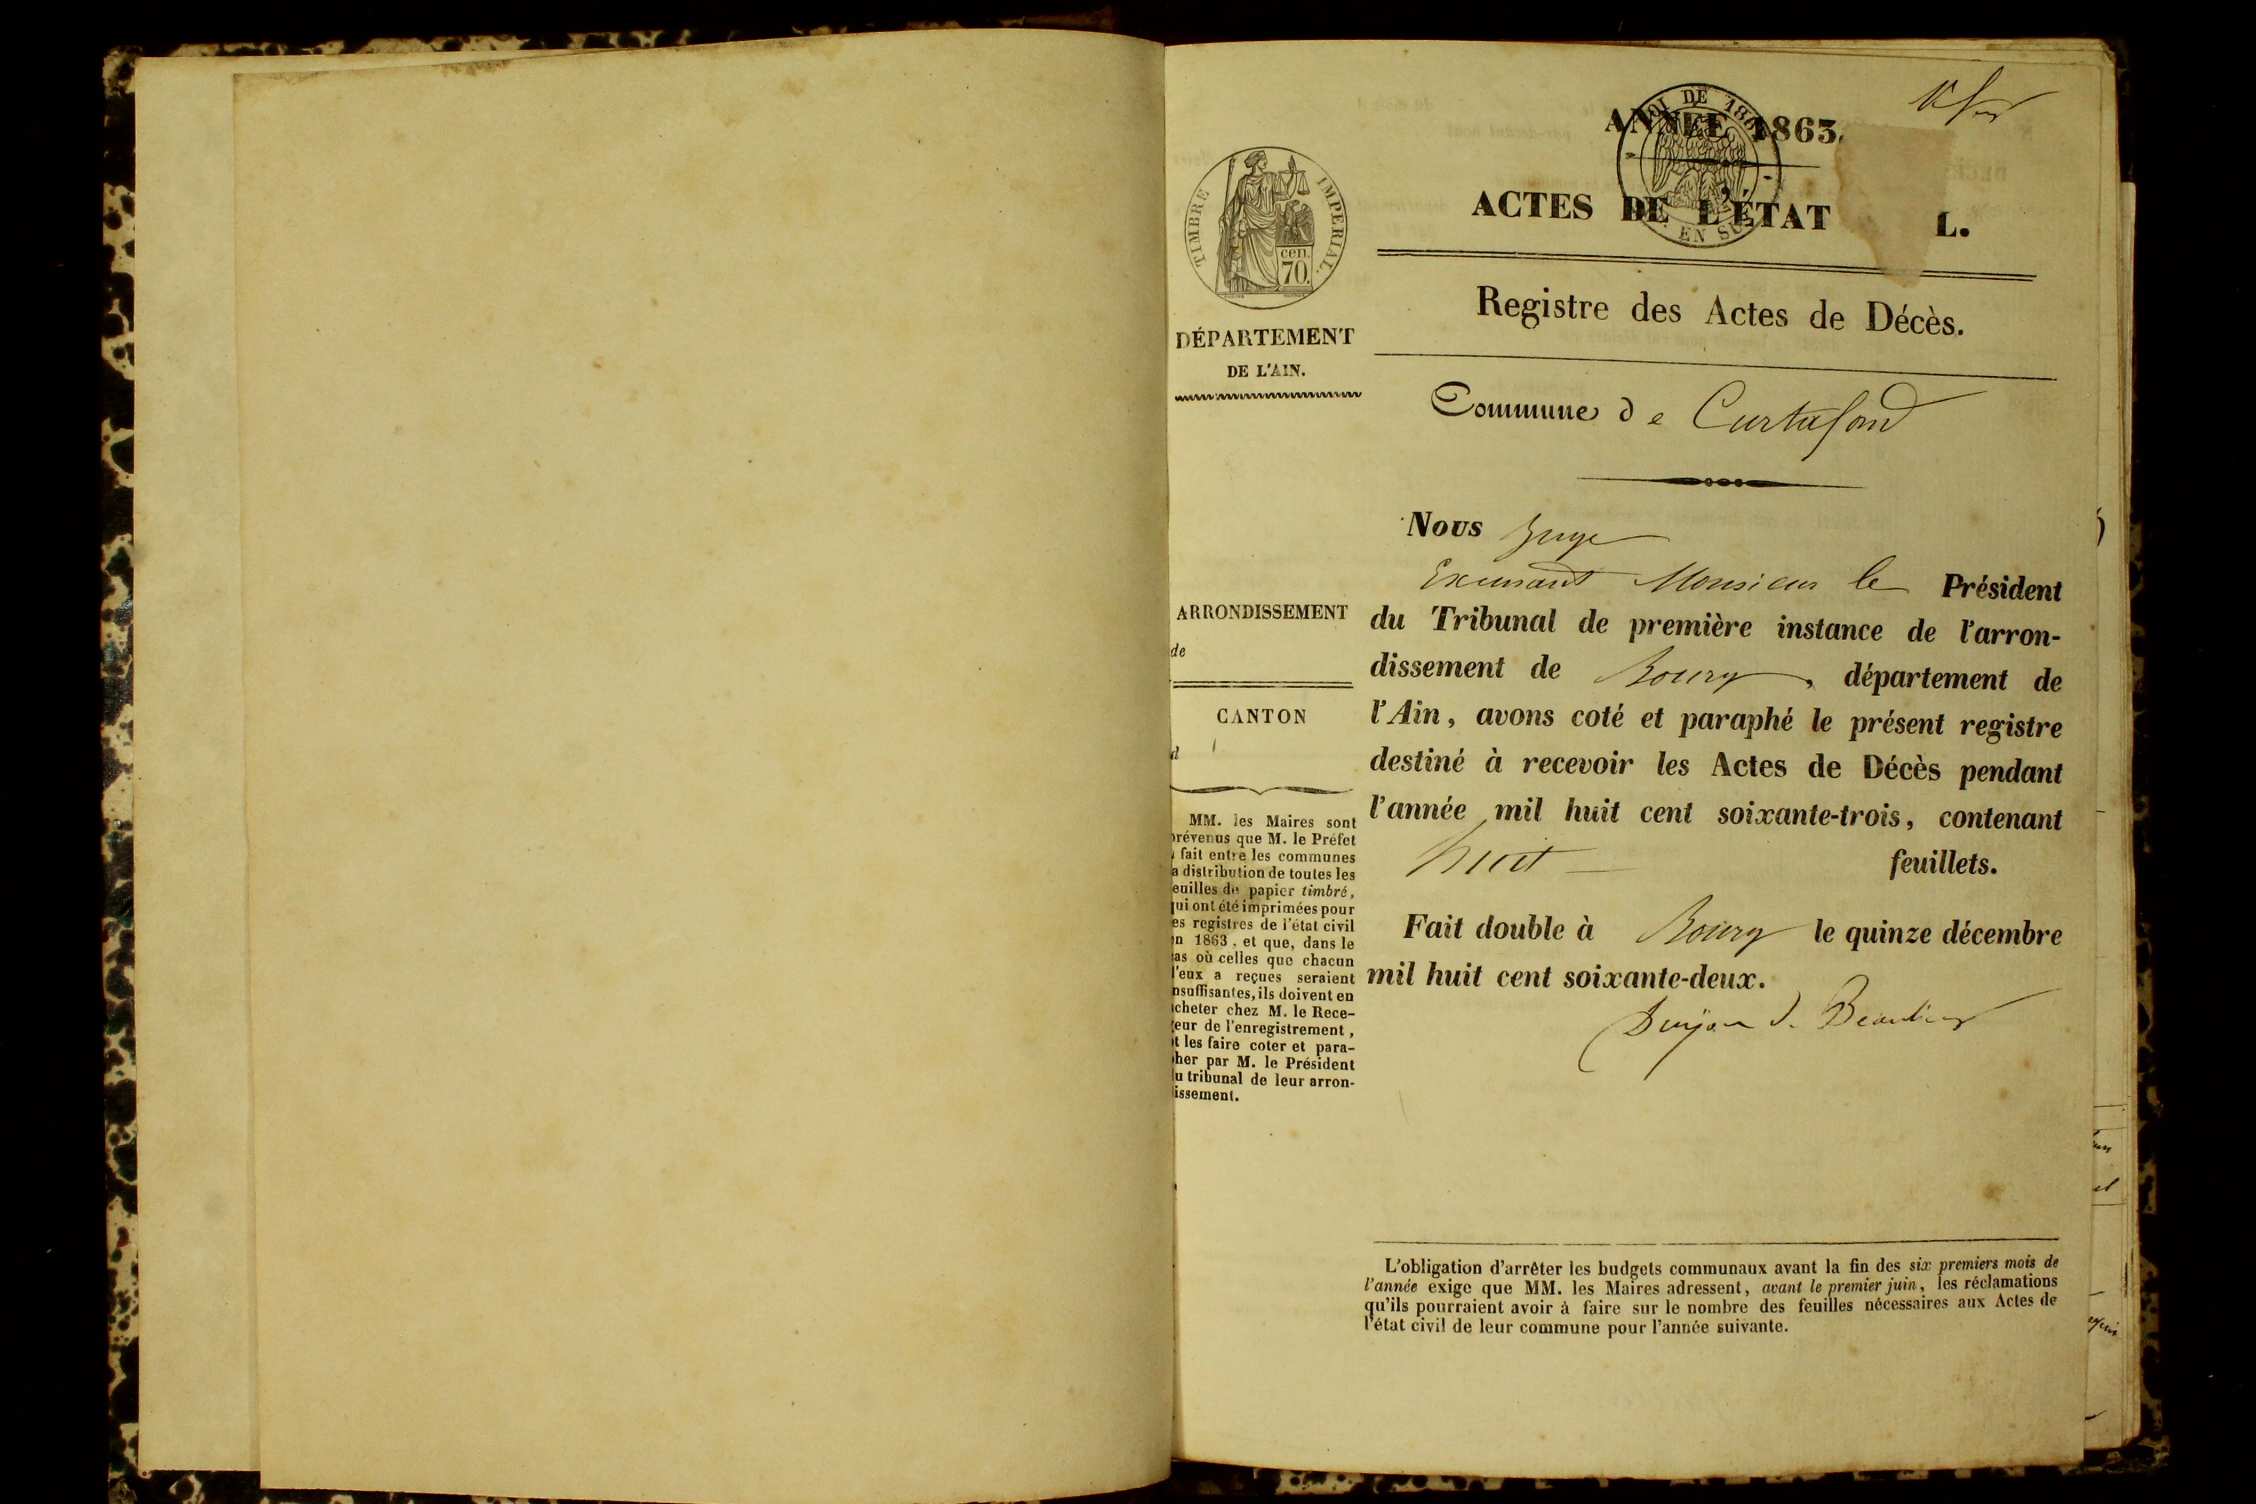 LOI DE 186
EN SUS
ANNÉE 1863.
ACTES DE L'ÉTAT L.
Registre des Actes de Décès.
TIMBRE IMPERIAL.
cen.
70.
DÉPARTEMENT
DE L'AIN.
Commune de Curtafond
Nous Juge
Excusant Monsieur le Président
du Tribunal de première instance de l'arron-
dissement de Bourg, département de
l'Ain, avons coté et paraphé le présent registre
destiné à recevoir les Actes de Décès pendant
l'année mil huit cent soixante-trois, contenant
huit feuillets.
Fait double à Bourg le quinze décembre
mil huit cent soixante-deux.
ARRONDISSEMENT
de
CANTON
d
MM. les Maires sont
prévenus que M. le Préfet
fait entre les communes
a distribution de toutes les
euilles de papier timbré,
qui ont été imprimées pour
es registres de l'état civil
en 1863, et que, dans le
cas où celles que chacun
d'eux a reçues seraient
nsuffisantes, ils doivent en
acheter chez M. le Rece-
veur de l'enregistrement,
et les faire coter et para-
pher par M. le Président
du tribunal de leur arron-
dissement.
L'obligation d'arrêter les budgets communaux avant la fin des six premiers mois de
l'année exige que MM. les Maires adressent, avant le premier juin, les réclamations
qu'ils pourraient avoir à faire sur le nombre des feuilles nécessaires aux Actes de
l'état civil de leur commune pour l'année suivante.